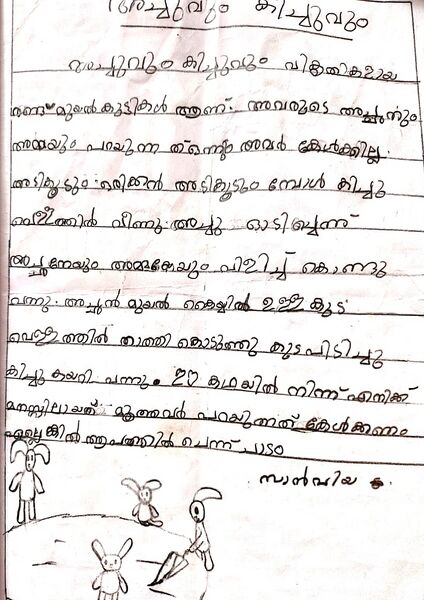 അച്ചുവും കിച്ചുവും
അച്ചുവും കിച്ചുവും വികൃതികളായ
രണ്ട് മുയൽകുട്ടികൾ ആണ്. അവരുടെ അച്ഛനും
അമ്മയും പറയുന്ന ത്ഒന്നും അവർ കേൾക്കില്ല.
അടികൂടും ഒരിക്കൽ അടികൂടും മ്പോൾ കിച്ചു
വെള്ളത്തിൽ വീണു. അച്ചു ഓടി
അച്ഛനേയും അമ്മയേയും വിളിച്ച് കൊണ്ടു
വന്നു. അച്ഛൻ മുയൽ കൈയ്യിൽ ഉള്ള കുട
വെള്ളത്തിൽ താത്തി കൊടുത്തു കുട പിടിച്ചു
കിച്ചു കയറി വന്നു. ഈ കഥയിൽ നിന്ന് എനിക്ക്
മനസ്സിലായത് മൂത്തവർ പറയുന്നത് കേൾക്കണം
ഇല്ലെങ്കിൽ ആപത്തിൽ ചെന്ന് ചാടും
സാൻവിയ